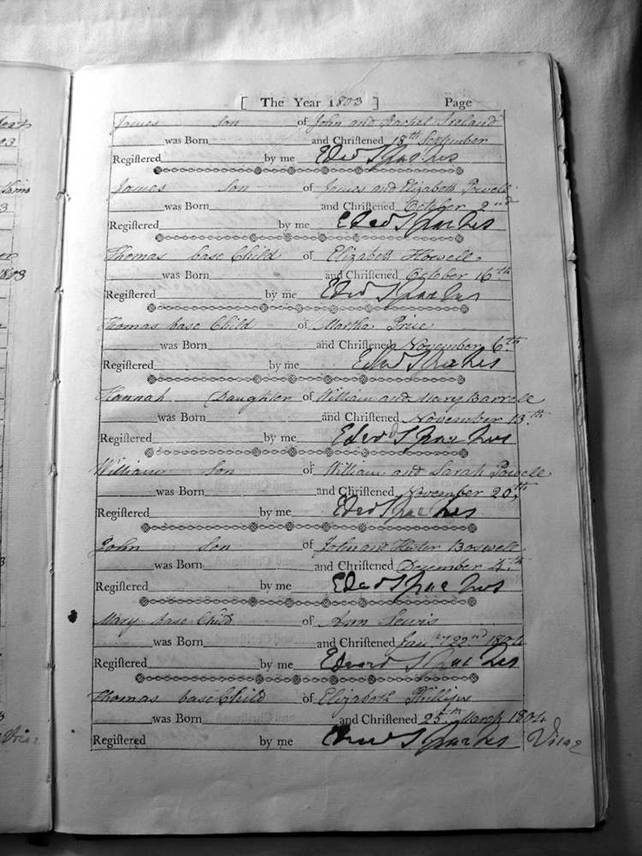 [ The Year 1803 ] Page
James son of John and Rachel Ireland
was Born and Christened 18th September
Registered by me Edwd Sparkes
James Son of James and Elizabeth Powell
was Born and Christened October 2nd
Registered by me Edwd Sparkes
Thomas base Child of Elizabeth Howells
was Born and Christened October 16th
Registered by me Edwd Sparkes
Thomas base Child of Martha Price
was Born and Christened November 6th
Registered by me Edwd Sparkes
Hannah Daughter of William and Mary Barrell
was Born and Christened November 13th
Registered by me Edwd Sparkes
William Son of William and Sarah Powell
was Born and Christened November 20th
Registered by me Edwd Sparkes
John Son of John and Hester Boswell
was Born and Christened December 4th
Registered by me Edwd Sparkes
Mary base Child of Ann Lewis
was Born and Christened Jany 22nd 1804
Registered by me Edward Sparkes
Thomas base Child of Elizabeth Phillips
was Born and Christened 25th March 1804
Registered by me Edwd Sparkes Vicar